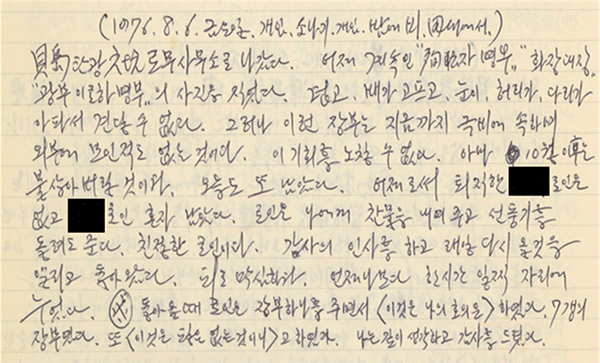 (1976.8.6. 금요일. 개임. 소나기. 개임. 밤에 비. 田에서.)
貝島炭礦 로무사무소로 나갔다. 어제 계속인 "殉職者 명부", 화장대장,
"광부 이로하 명부"의 사진을 찍었다. 덥고, 배가 고프고, 눈이, 허리가, 다리가
아파서 견딜 수 없다. 그러나 이런 장부는 지금까지 극비에 속하며
외부에 보인적도 없는 것이다. 이 기회를 노칠 수 없다. 아마 10월 이후는
불살아버릴 것이다. 오늘도 또 났았다. 어제로서 퇴직한 로인은
없고 로인 혼자 났았다. 로인은 나에게 찬물을 내여주고 선풍기를
돌려도 준다. 친절한 로인이다. 감사의 인사를 하고 래일 다시 올것을
일리고 돌아왔다. 언제나보다 한시간 일찍 자리에
누웠다. 돌아올때 로인은 장부하나를 주면서 <이것은 나의 호의요> 하였다. 7개의
장부였다. 또 <이것은 다른 없는것이니>고 하였다. 나는 깊이 생각하고 감사를 드렸다.